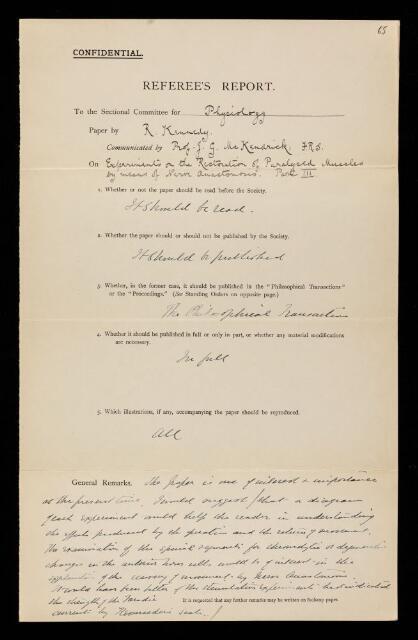 65
CONFIDENTIAL.
REFEREE'S REPORT.
To the Sectional Committee for Physiology
Paper by R. Kennedy.
Communicated by Prof. J. G. McKendrick, F.R.S.
On Experiments on the Restoration of Paralysed Muscles
by means of Nerve Anastomosis. Part III
1. Whether or not the paper should be read before the Society.
It should be read.
2. Whether the paper should or should not be published by the Society.
It should be published
3. Whether, in the former case, it should be published in the "Philosophical Transactions"
or the "Proceedings." (See Standing Orders on opposite page.)
The Philosophical Transactions
4. Whether it should be published in full or only in part, or whether any material modifications
are necessary.
In full
5. Which illustrations, if any, accompanying the paper should be reproduced.
All
General Remarks. The paper is one of interest & importance
at the present time. I would suggest that a diagram
of each experiment would help the reader in understanding
the effects produced by the operation and the return of movement.
The examination of the spinal segments for chromatolysis or degenerative
changes in the anterior horn cells would be of interest in the
explanation of the recovery of movement by Nerve Anastomosis
It would have been better if the stimulation experiments had indicated
the strength of the Faradic
If it is requested that any further remarks may be written on foolscap paper.
current by Kronecker's scale.